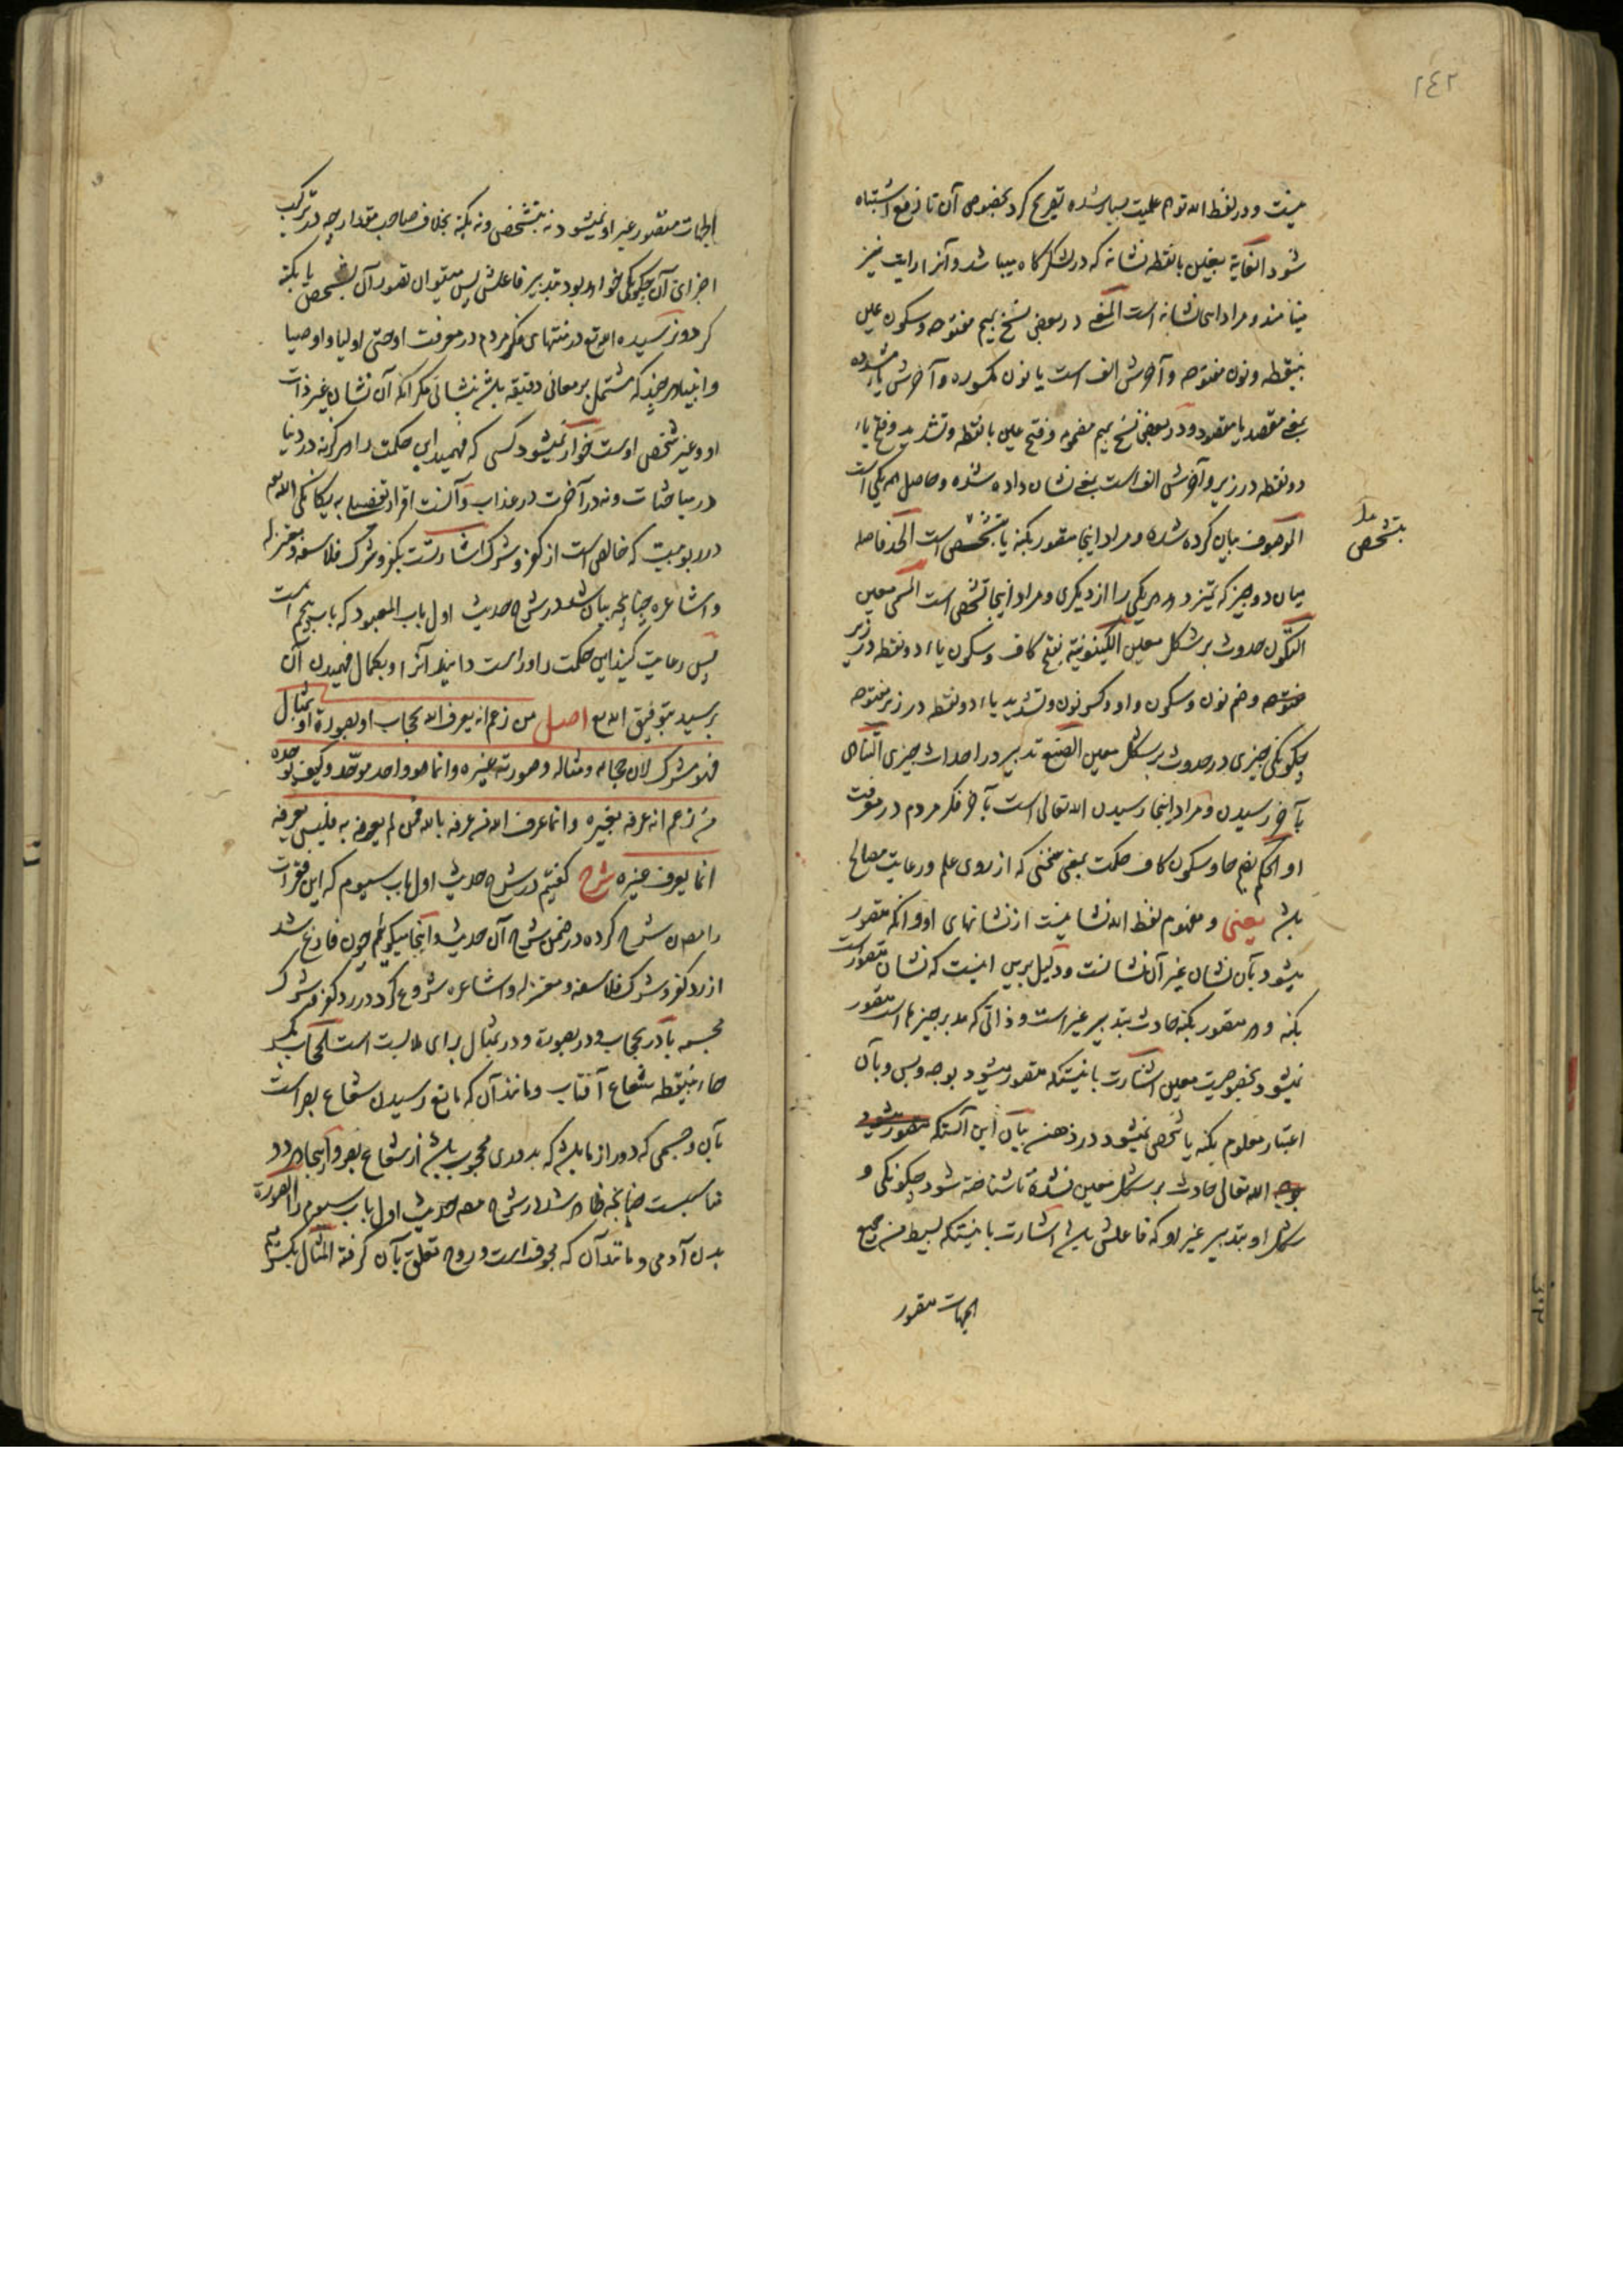 ٢٤٢
نیست و در لفظ الله توهم علمیت بسیار شده تصریح کرد بخصوص آن تا رفع اشتباه
شود الغایة بغین بانقطه نشانه که در لشکرگاه میباشد و آنرا رایت نیز
مینامند و مراد اینجا نشانه است المعنی در بعض نسخ بمیم مفتوحه و سکون عین
بینقطه و نون مفتوحه و آخرش الف است یا نون مکسوره و آخرش یاء مشدده
بمعنی مقصد یا مقصود و در بعض نسخ بمیم مضمومه و فتح غین بانقطه و تشدید و فتح یاء
دو نقطه در زیر و آخرش الف است بمعنی نشان داده شده و حاصل هر یکی است
الموصوف بیان کرده شده و مراد اینجا متصور بکنه یا بتشخص است الحد فاصله
بتشخص
میان دو چیز که تمیز دهد هر یکی را از دیگری و مراد اینجا تشخص است المسمی معین
التکون حدوث بر شکل معین الکینونیة بفتح کاف و سکون یاء دو نقطه در زیر
مفتوحه و ضم نون و سکون واو و کسر نون و تشدید یاء دو نقطه در زیر مفتوحه
چکونکی چیزی در حدوث بر شکل معین الصنع تدبیر در احداث چیزی التناهی
بآخر رسیدن و مراد اینجا رسیدن الله تعالی است بآخر فکر مردم در معرفت
او الحکم بضم حا و سکون کاف حکمت بمعنی سخنی که از روی علم و رعایت مصالح
باشد یعنی و مفهوم لفظ الله نشانیست از نشانهای او و آنکه متصور
میشود بآن نشان غیر آن نشانست و دلیل برین اینست که نشان متصور است
بکنه و هر متصور بکنه حادث بتدبیر غیر است و ذاتی که مدبر چیزها است متصور
نمیشود بخصوصیت معین اشارت باینستکه متصور میشود بوجه و بس و بآن
اعتبار معلوم بکنه یا شخص نمیشود در ذهن بیان این آنستکه متصور میشود
بوجه الله تعالی حادث بر شکل معین نشده تا شناخته شود چکونکی و
شکل او بتدبیر غیر او که فاعلش باشد اشارت باینستکه بسیط من جمیع
الجهات متصور
الجهات متصور غیر او نمیشود نه بتشخص و نه بکنه بخلاف صاحب مقدار چه در ترکب
اجزای آن چکونکی خواهد بود بتدبیر فاعلش پس میتوان تصور آن بشخص یا بکنه
کرد و نرسیده الله تع در منتهای فکر مردم در معرفت او حتی اولیا و اوصیا
و انبیا هر چند که مشتمل بر معانی دقیقه باشد بنشانی مکر آنکه آن نشان غیر ذات
او و غیر شخص اوست خوار نمیشود کسی که فهمید این حکمت را هرکز نه در دنیا
در مباحثات و نه در آخرت در عذاب و آنست اقرار تفصیلی به یکانکی الله تع
در ربوبیت که خالص است از کفر و شرک اشارتست بکفر و شرک فلاسفه و معتزله
و اشاعره چنانچه بیان شد در شرح حدیث اول باب المعبود که باب پنجم است
پس رعایت کنید این حکمت را و راست دانید آنرا و بکمال فهمیدن آن
برسید بتوفیق الله تع اصل من زعم انه یعرف الله بحجاب او بصورة او بمثال
فهو مشرک لان حجابه و مثاله و صورته غیره و انما هو واحد موحّد و کیف یوحده
من زعم انه عرفه بغیره و انما عرف الله من عرفه بالله فمن لم یعرفه به فلیس یعرفه
انما یعرف غیره شرح کفتیم در شرح حدیث اول باب سیوم که این فقرات
را مصنف شرح کرده در ضمن شرح آن حدیث و اینجا میکوئیم چون فارغ شد
از رد کفر و شرک فلاسفه و معتزله و اشاعره شروع کرد در رد کفر و شرک
مجسمه با در بحجاب و در بصورة و در بمثال برای ملابست است الحجاب بکسر
حاء بینقطه شعاع آفتاب و مانند آن که مانع رسیدن شعاع بصر است
بآن و جسمی که دور از ما باشد که بدوری محجوب باشد از شعاع بصر و اینجا هر دو
مناسبست چنانچه ظاهر شد در شرح حدیث اول باب سیوم الصورة
بدن آدمی و مانند آن که مجوف است و روح تعلق بآن کرفته المثال بکسر میم